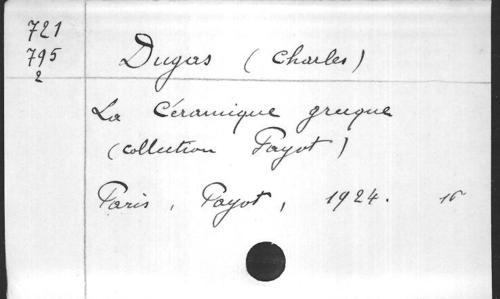 721
795
2
Dugas (Charles)
La Céramique grecque
(collection Payot)
Paris, Payot, 1924. 16